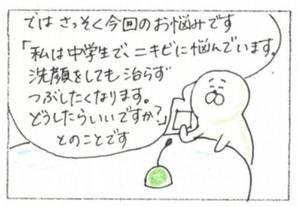 では さっそく今回のお悩みです
「私は中学生で、ニキビに悩んでいます。
洗顔をしても治らず
つぶしたくなります。
どうしたらいいですか?」
とのことです